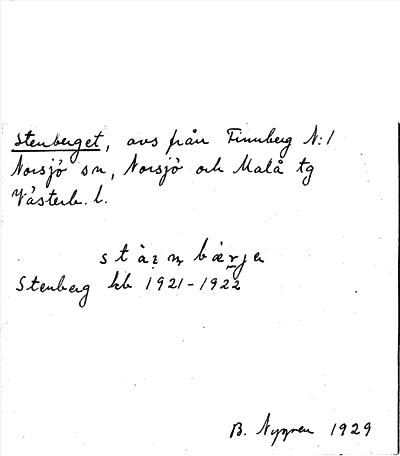 Stenberget, avs från Finnberg N:1
Norsjö sn, Norsjö och Malå tg
Västerb. l.
Stenberg kb 1921-1922
B. Nygren 1929